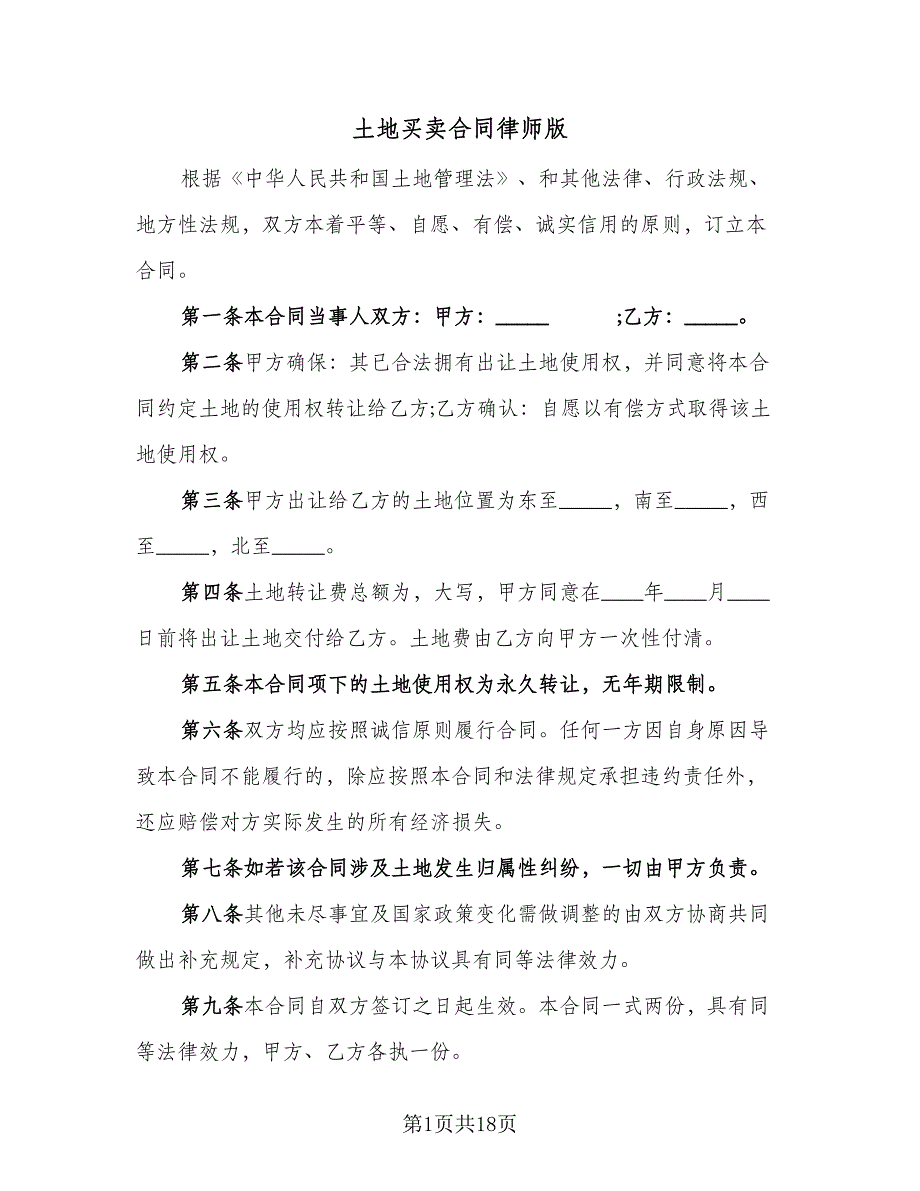 土地买卖合同律师版
根据《中华人民共和国土地管理法》、和其他法律、行政法规、
地方性法规，双方本着平等、自愿、有偿、诚实信用的原则，订立本
合同。
第一条本合同当事人双方：甲方：_____ ;乙方：_____。
第二条甲方确保：其已合法拥有出让土地使用权，并同意将本合
同约定土地的使用权转让给乙方;乙方确认：自愿以有偿方式取得该土
地使用权。
第三条甲方出让给乙方的土地位置为东至_____，南至_____，西
至_____，北至_____。
第四条土地转让费总额为，大写，甲方同意在____年____月____
日前将出让土地交付给乙方。土地费由乙方向甲方一次性付清。
第五条本合同项下的土地使用权为永久转让，无年期限制。
第六条双方均应按照诚信原则履行合同。任何一方因自身原因导
致本合同不能履行的，除应按照本合同和法律规定承担违约责任外，
还应赔偿对方实际发生的所有经济损失。
第七条如若该合同涉及土地发生归属性纠纷，一切由甲方负责。
第八条其他未尽事宜及国家政策变化需做调整的由双方协商共同
做出补充规定，补充协议与本协议具有同等法律效力。
第九条本合同自双方签订之日起生效。本合同一式两份，具有同
等法律效力，甲方、乙方各执一份。
第1页共18页